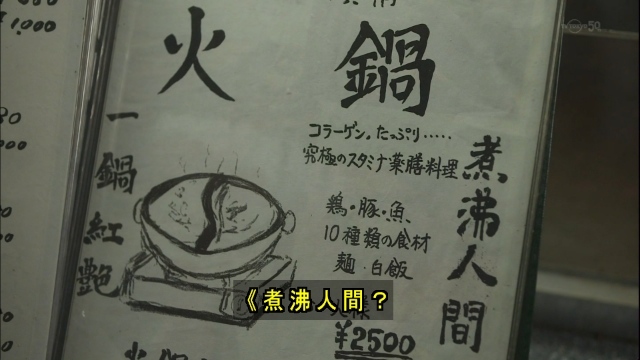 火鍋
コラーゲン。たっぷり.....
究極のスタミナ薬膳料理
煮沸人間
一鍋紅艶
鶏・豚・魚
10種類の食材
麺・白飯
¥2500
《煮沸人間？